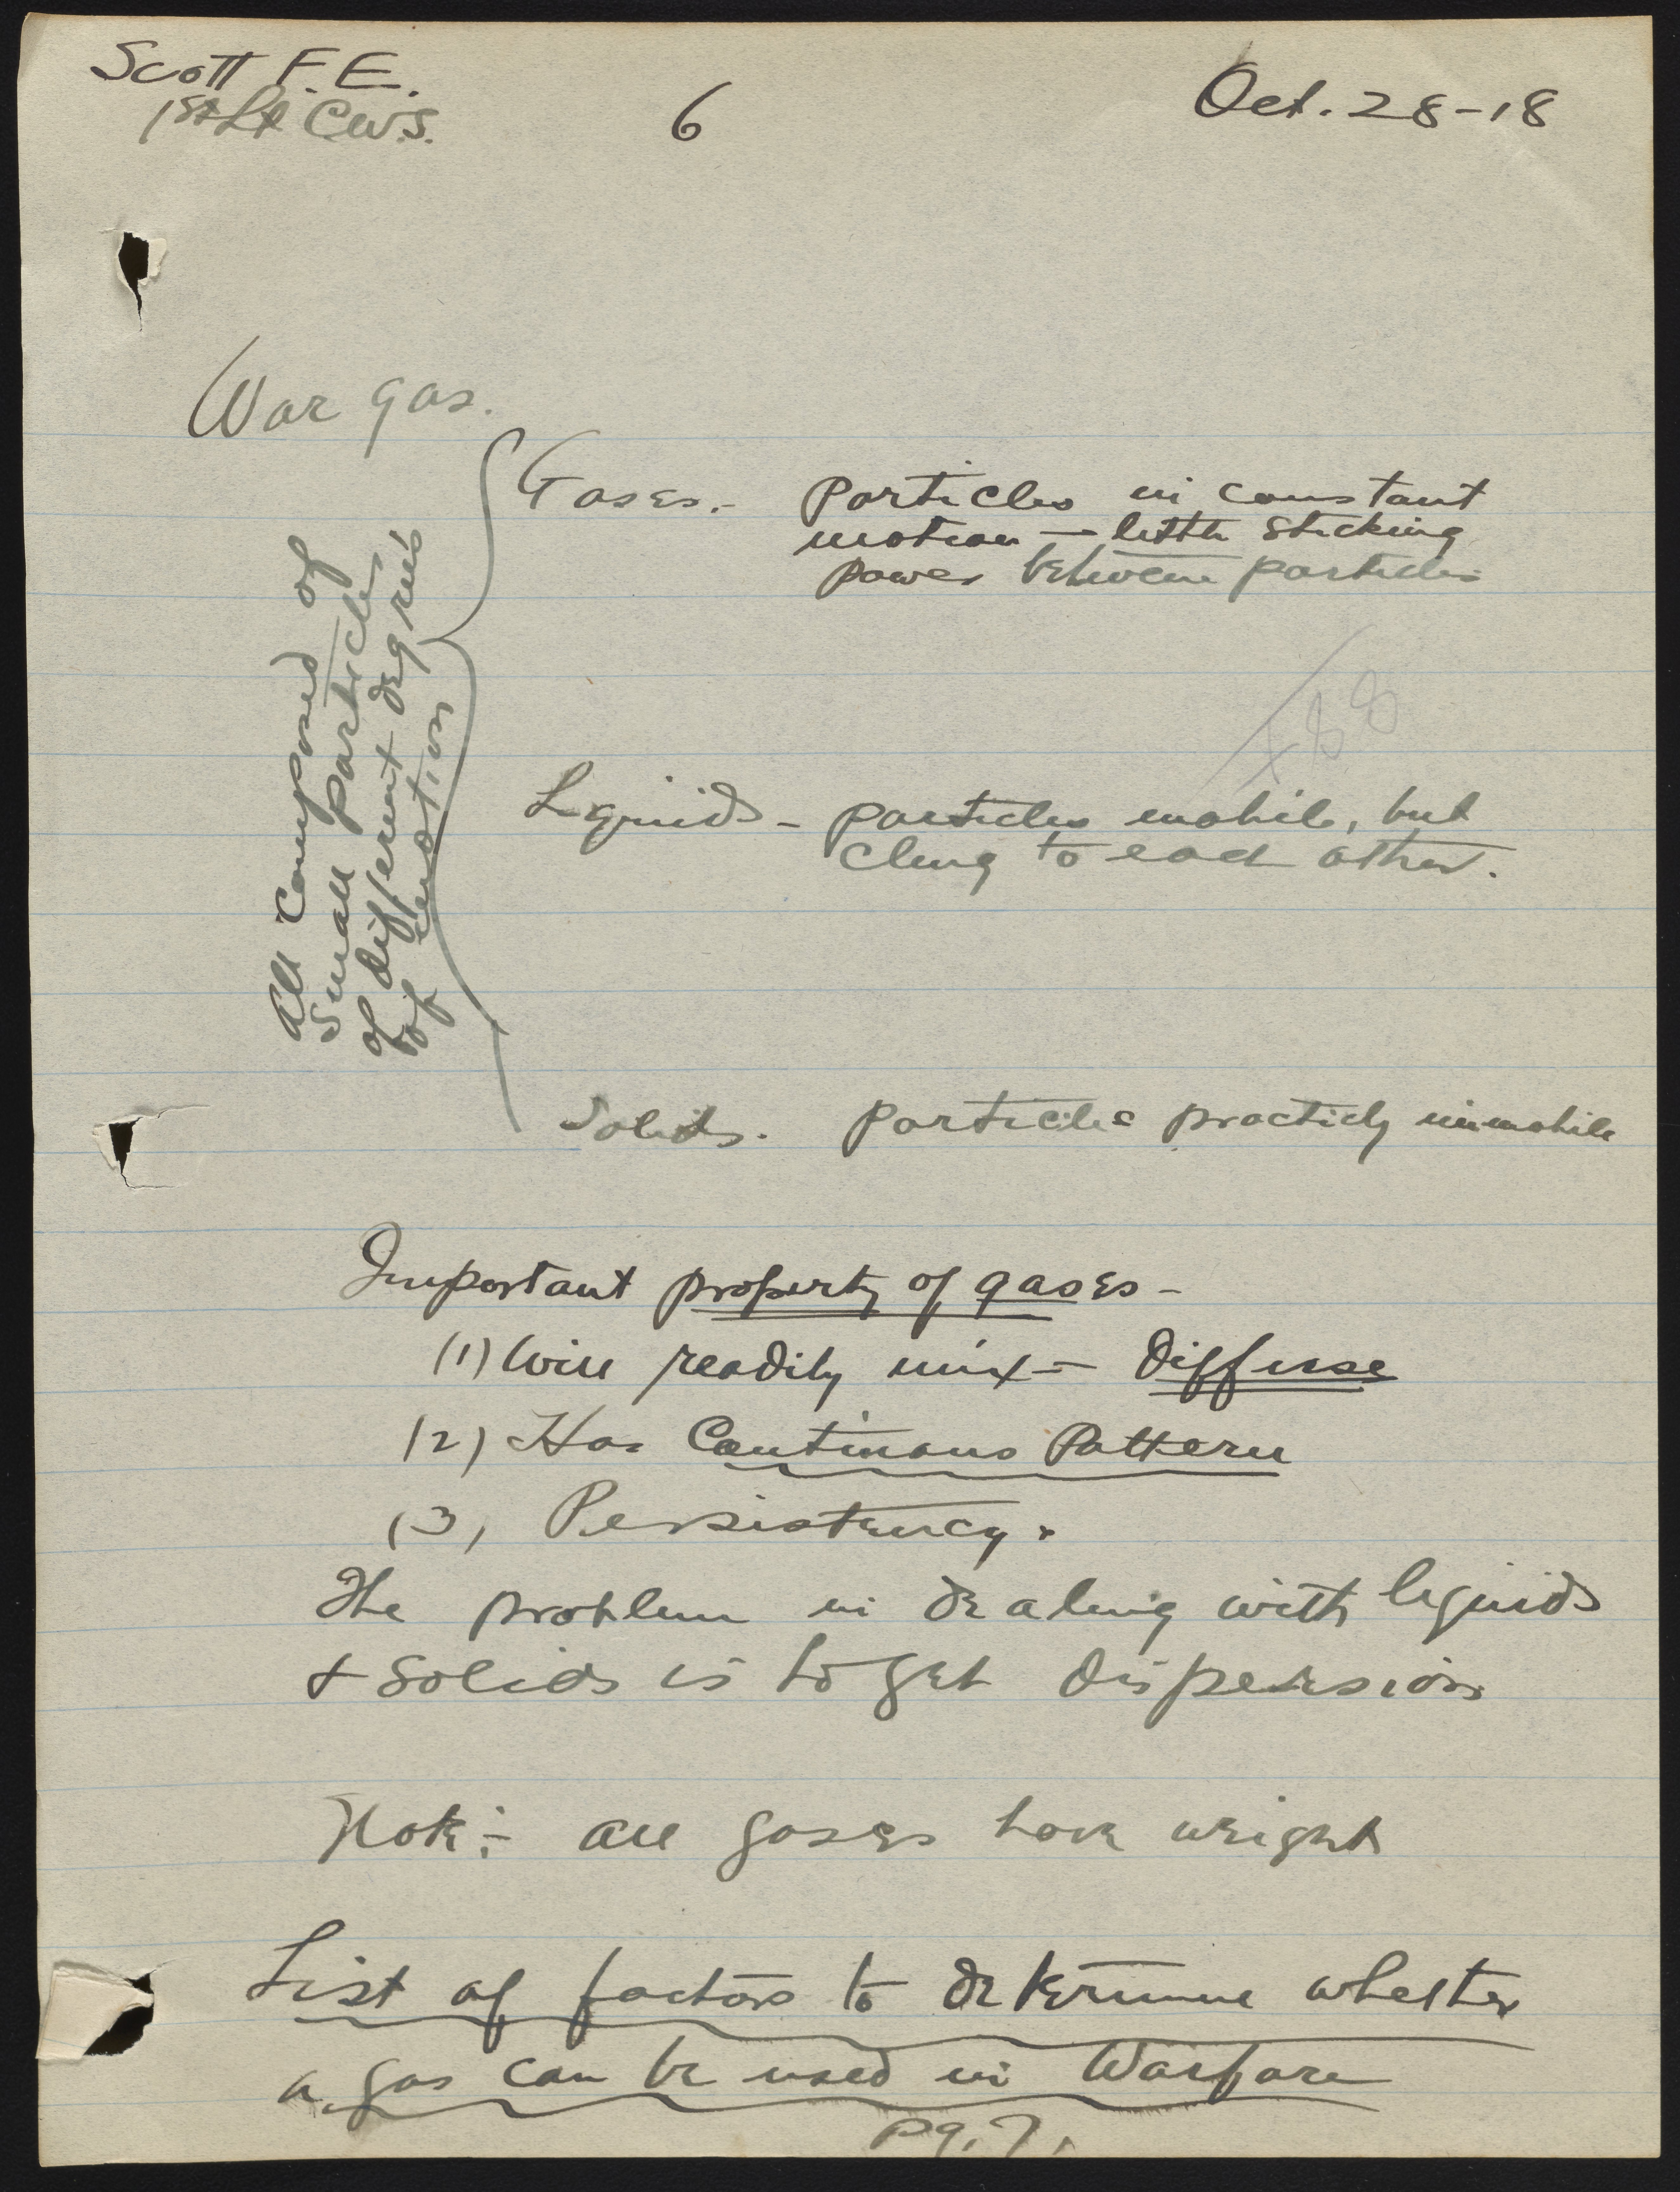 Scott F.E.
1st Lt C.W.S.
6
Oct. 28-18
War gas.
All composed of
small particles
of different degrees
of motion
Gases.- particles in constant
motion — little sticking
power between particles
Liquids - particles mobile, but
cling to each other.
Solids. particles practicly immobile
Important property of gases -
(1) Will readily mix - Diffuse
(2) Has Continous Pattern
(3) Persistency.
The problem in dealing with liquids
+ solids is to get dispersion
Note:- all gases have weight
List of factors to determine whether
a gas can be used in Warfare
Pg. 7.